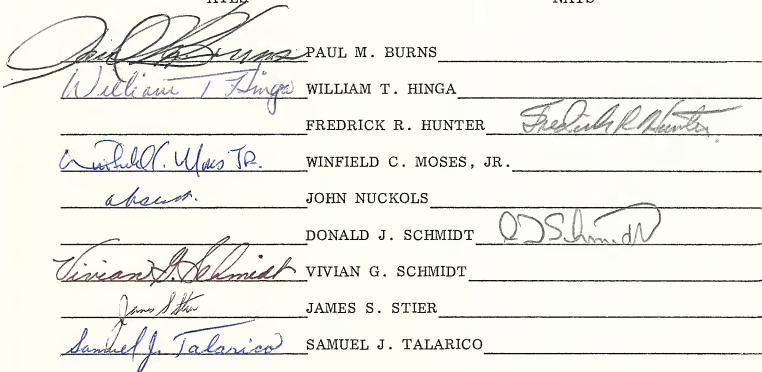 AYES NAYS
Paul M Burns PAUL M. BURNS
William T Hinga WILLIAM T. HINGA
FREDRICK R. HUNTER Fredrick R Hunter
Winfield C. Moses JR. WINFIELD C. MOSES, JR.
absent. JOHN NUCKOLS
DONALD J. SCHMIDT D J Schmidt
Vivian G. Schmidt VIVIAN G. SCHMIDT
James S Stier JAMES S. STIER
Samuel J. Talarico SAMUEL J. TALARICO